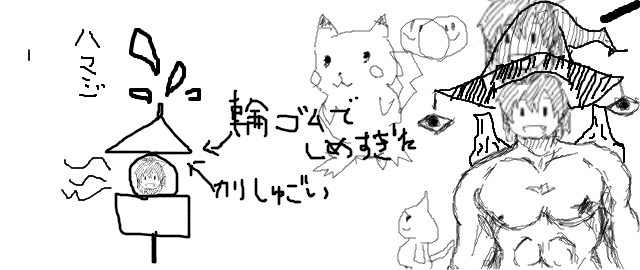 ハマジ
輪ゴムで
しめすぎた
カリしゅごい